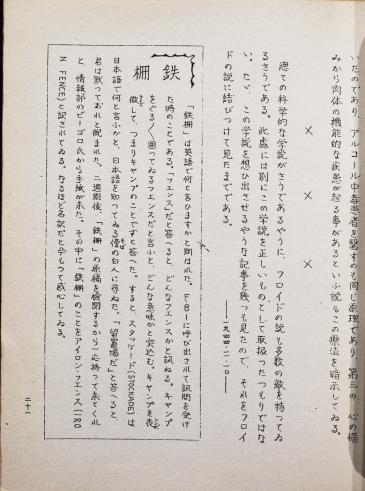 いたのであり、アルコール中毒患者を醫すのも同じ原理であり、第三の、心の悩
みから肉体の機能的な疾患が起る事があるといふ説もこの療法を暗示してゐる。
×　×　×
總ての科学的な学説がさうであるやうに、フロイドの説も多数の敵を持つてゐ
るさうである。此處には別にこの学説を正しいものとして取扱つたつもりではな
い。たゞ、この学説を想ひ出させるやうな記事を幾つも見たので、それをフロイ
ドの説に結びつけて見たまでである。
――一九四四・二・一〇――
鉄柵
「鉄柵」は英語で何と言ひますかと聞はれた。FBIに呼び出されて訊問を受け
た時のことである。「フェンス」だと答へると、どんなフェンスかと訊ねる。キャンプ
をぐる／＼囲つてゐるフェンスだと言ふと、どんな意味かと突込む。キャンプを表
徴して、つまりキャンプのことですと答へた。すると、スタッケード(STOCKADE)は
日本語で何と言ふかと、日本語を知つてゐる傍の白人に尋ねた。「留置場だ」と答へると、
君は黙つておれと睨まれた。二週間後、「鉄柵」の原稿を檢閲するから一応持つて来てくれ
と、情報部のピーゴロ氏から手紙が来た。その中に「鉄柵」のことをアイロン・フェンス(IRO
N FENCE)と訳されてゐる。なるほど名訳だと今もつて感心してゐる。
二十一